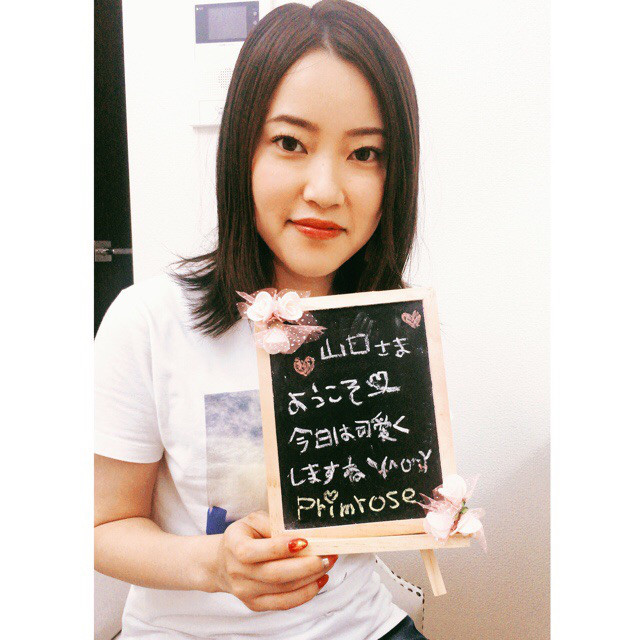 山口さま
ようこそ
今日は可愛く
しますね
Primrose